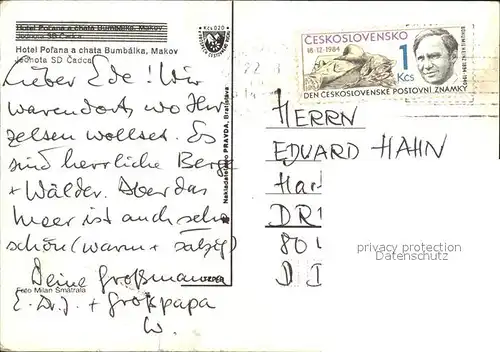 Hotel Poľana a chata Bumbálka, Makov
Hotel Poľana a chata Bumbálka, Makov
Jednota SD Čadca
Kčs 0,20
Lieber Ede! Wir
waren dort, wo Ihr
zelten wolltet. Es
sind herrliche Berge
+ Wälder. Aber das
Meer ist auch sehr
schön (warm + salzig)
Deine Großmama
E. D. J. + Großpapa
W.
Foto Milan Šmátrala
Nakladateľstvo PRAVDA, Bratislava
ČESKOSLOVENSKO
18.12.1984
1
Kčs
DEN ČESKOSLOVENSKÉ POŠTOVNÍ ZNÁMKY
HERRN
EDUARD HAHN
Har
DR
801
D
privacy protection
Datenschutz